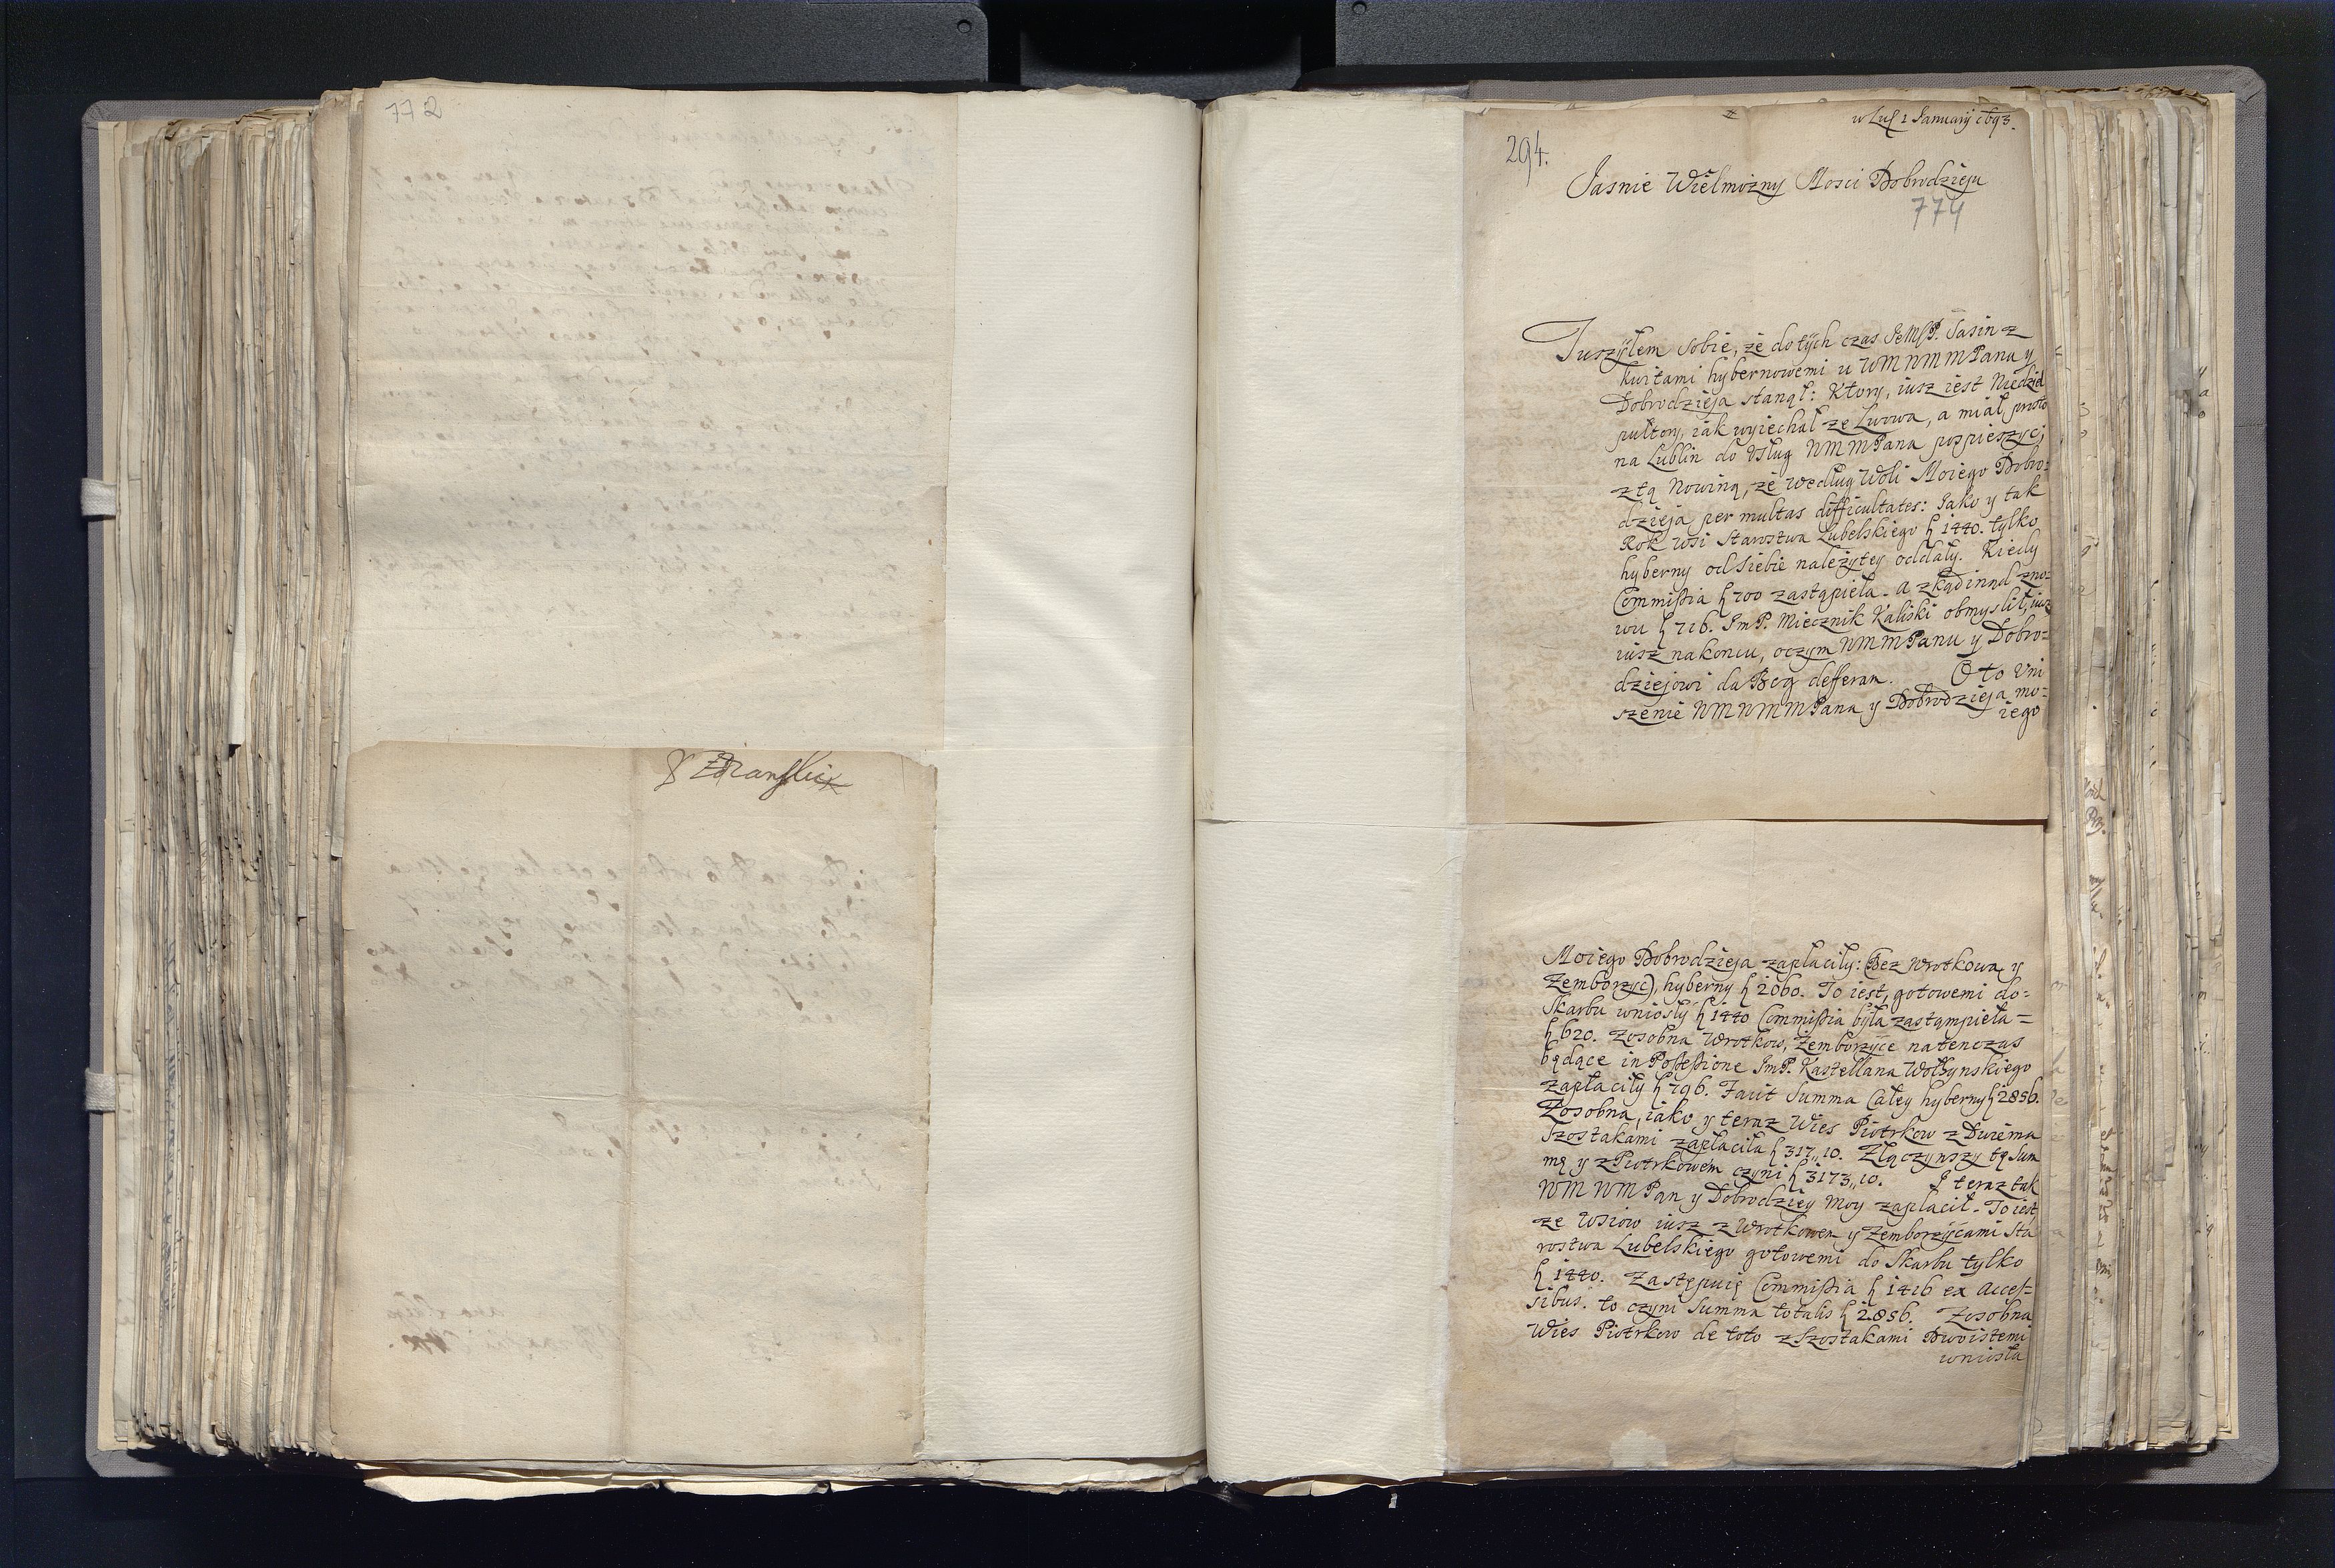 772
294.
w Lub 1 January 1693.
Jasnie Wielmozny Mosci Dobrodzieju
774
Tuszyłem sobie, ze do tych czas JeMP. Sasin z
kwitami hybernowemi u WMWMMPanu y
Dobrodzieja stanął: Ktory, iusz iest Niedziel
pułtory, iak wyiechał ze Lwowa, a miał prosto
na Lublin do Usług WMMPana pospieszyc;
z tą Nowiną, ze według Woli Moiego Dobro:
dzieja per multas difficultates: Jako y tak
Rok wsi Starostwa Lubelskiego ł 1440. tylko
hyberny od siebie nalezytey oddały. Kiedy
Commissia ł 700 zastąpieła. a zkądinąd zno:
wu ł 716. JmP. Miecznik Kaliski obmyslił, iusz
iusz nakoncu, oczym WMMPanu y Dobro:
dziejowi da Bog defferam. O to Uni
szenie WMWMMPana y Dobrodzieja mo:
iego
Moiego Dobrodzieja zapłaciły: (Bez Wrotkowa y
Zemborzyc), hyberny ł 2060. To iest, gotowemi do:
Skarbu wniosły ł 1440 Commissia była zastąmpieła =
ł 620. Zosobna Wrotkow, Zemborzyce natenczas
będące in Possessione JmP. Kasztellana Wołynskiego
zapłaciły ł 796. Facit Summa Całey hyberny ł 2856.
Zosobna, iako y teraz Wies Piotrkow z Dwiema
Szostakami zapłaciła ł 317,,10. Złączywszy tę Sum
mę y z Piotrkowem czyni ł 3173,,10. I teraz tak
WMWMPan y Dobrodziey Moy zapłacił. To iest
ze Wsiow iusz z Wrotkowem y Zemborzycami Sta
rostwa Lubelskiego gotowemi do Skarbu tylko
ł 1440. Zastępuię Commissia ł 1416 ex Acces=
sibus. to czyni Summa totalis ł 2856. Zosobna
Wies Piotrkow de toto z Szostakami Dwoistemi
wniosła